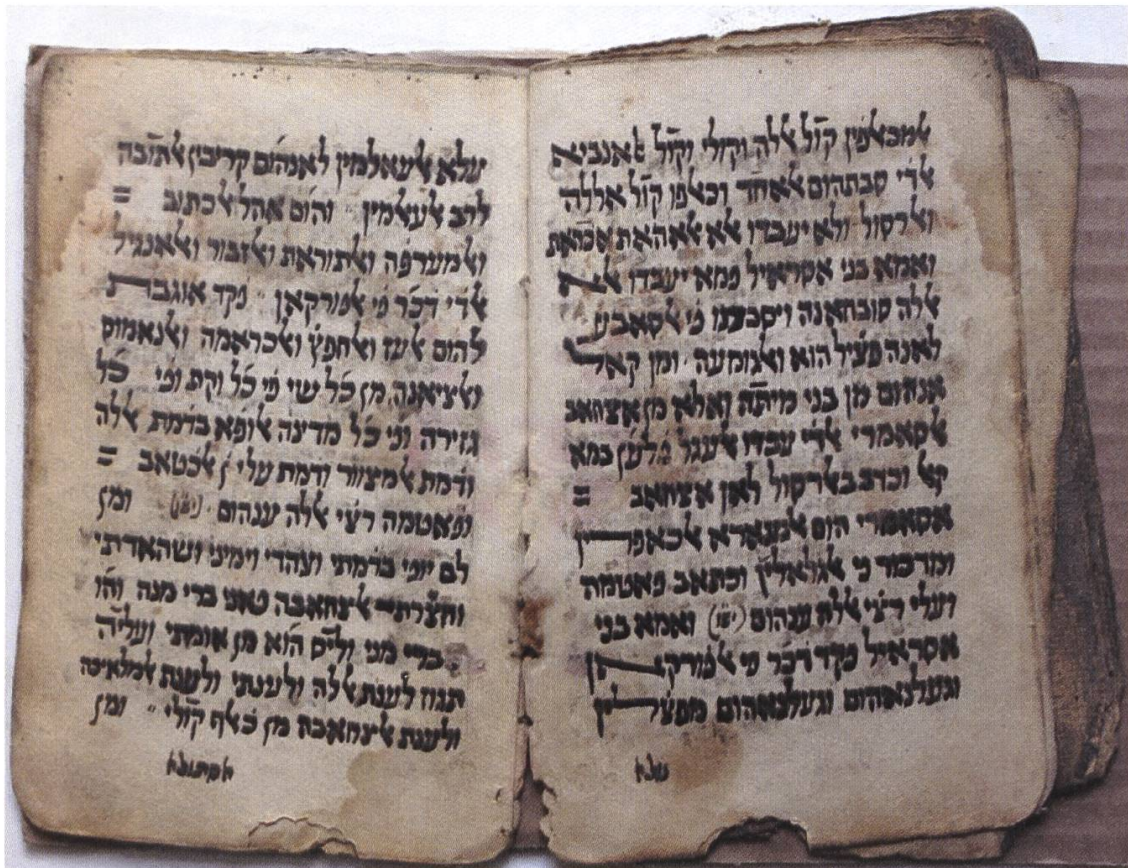 אלמכאלפין קול אללה וקולי וקול אלאנביא
אלדי סבתהום לאחד וכאלפו קול אללה
ואלרסול ולא יעבדו
ואמא בני אסראיל פמא יעבדו
אללה סובחאנה ויסבתו פי אלסאבע
לאנה פציל הוא ואלגומעה ומן קאל
אנהום מן בני מיתה ואלא מן אצחאב
אלסאמרי אלדי עבדו אלעגל פלען כמא
קאל וכדב באלרסול לאן אצחאב =
אסאמרי הום אלנצארא אלכאפרין
ומדכור פי אלגואלין וכתאב פאטמה
ועלי רצי אללה ענהום ואמא בני
אסראיל פקד דכר פי אלפורקאן
וגעלנאהום וגעלנאהום מפצלין
עלא
עלא אלעאלמין לאנהום קריבין אלתובה
לרב אלעאלמין והום אהל אלכתוב =
ואלמערפה ואלתוראת ואלזבור ואלאנגיל
אלדי דכר פי אלפורקאן פקד אוגבת
להום אלעז ואלחפץ ואלכראמה ואלנאמוס
ואלציאנה מן כל שי פי כל וקת ופי כל
גזירה ופי כל מדינה אלופא בדמת אללה
ודמת אלמצוור ודמת עלי ן אלכטאב =
ופאטמה רצי אללה ענהום ומן
לם יופי בדמתי ועהדי וימיני ושהאדתי
וחצרתי אלצחאבה פאני ברי מנה והו
ברי מני וליס הוא מן אומתי ועליה
תנזח לענת אללה ולענתי ולענת אלמלאיכה
ולענת אלצחאבה מן כאלף קולי ומן